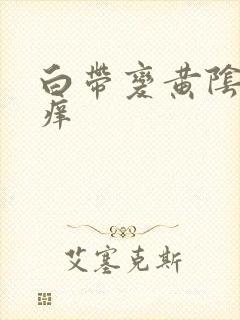 白带變黄陰
痒
艾塞克斯